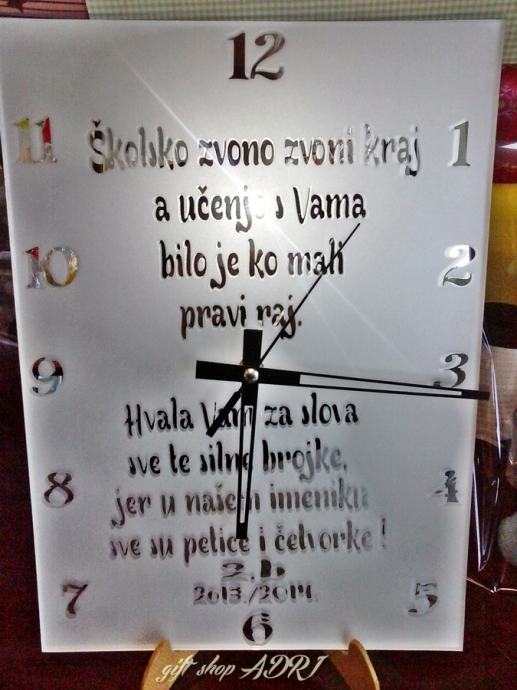 12
11
1
Školsko zvono zvoni kraj
a učenje s Vama
10
2
bilo je ko mali
pravi raj.
9
3
Hvala Vam za slova
sve te silne brojke,
8
4
jer u našem imeniku
sve su petice i četvorke!
2.b
7
5
2013./2014.
6
gift shop ADRI